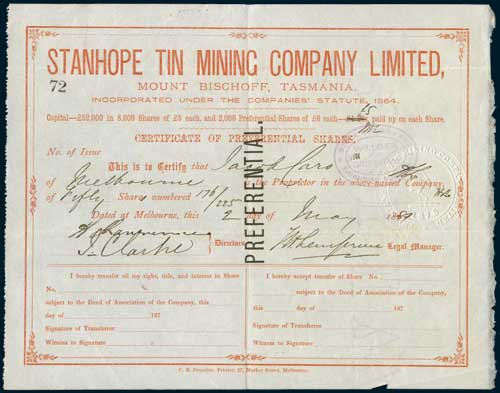 STANHOPE TIN MINING COMPANY LIMITED,
72
MOUNT BISCHOFF, TASMANIA.
INCORPORATED UNDER THE COMPANIES' STATUTE, 1864.
Capital—£52,000 in 8,000 Shares of £5 each, and 2,000 Preferential Shares of £6 each— £5 paid up on each Share.
CERTIFICATE OF PREFERENTIAL SHARES.
No. of Issue
This is to Certify that Jacob Caro
of Melbourne is the Proprietor in the above-named Company,
of Fifty Shares numbered 176/225
Dated at Melbourne, this 2 day of May 188
PREFERENTIAL.
J. Clarke Directors Legal Manager.
I hereby transfer all my right, title, and interest in Share
No.
subject to the Deed of Association of the Company, this
day of 187
Signature of Transferror
Witness to Signature
I hereby accept transfer of Share No.
subject to the Deed of Association of the Company,
this day of 187
Signature of Transferree
Witness to Signature
Printer, 57, Market Street, Melbourne.